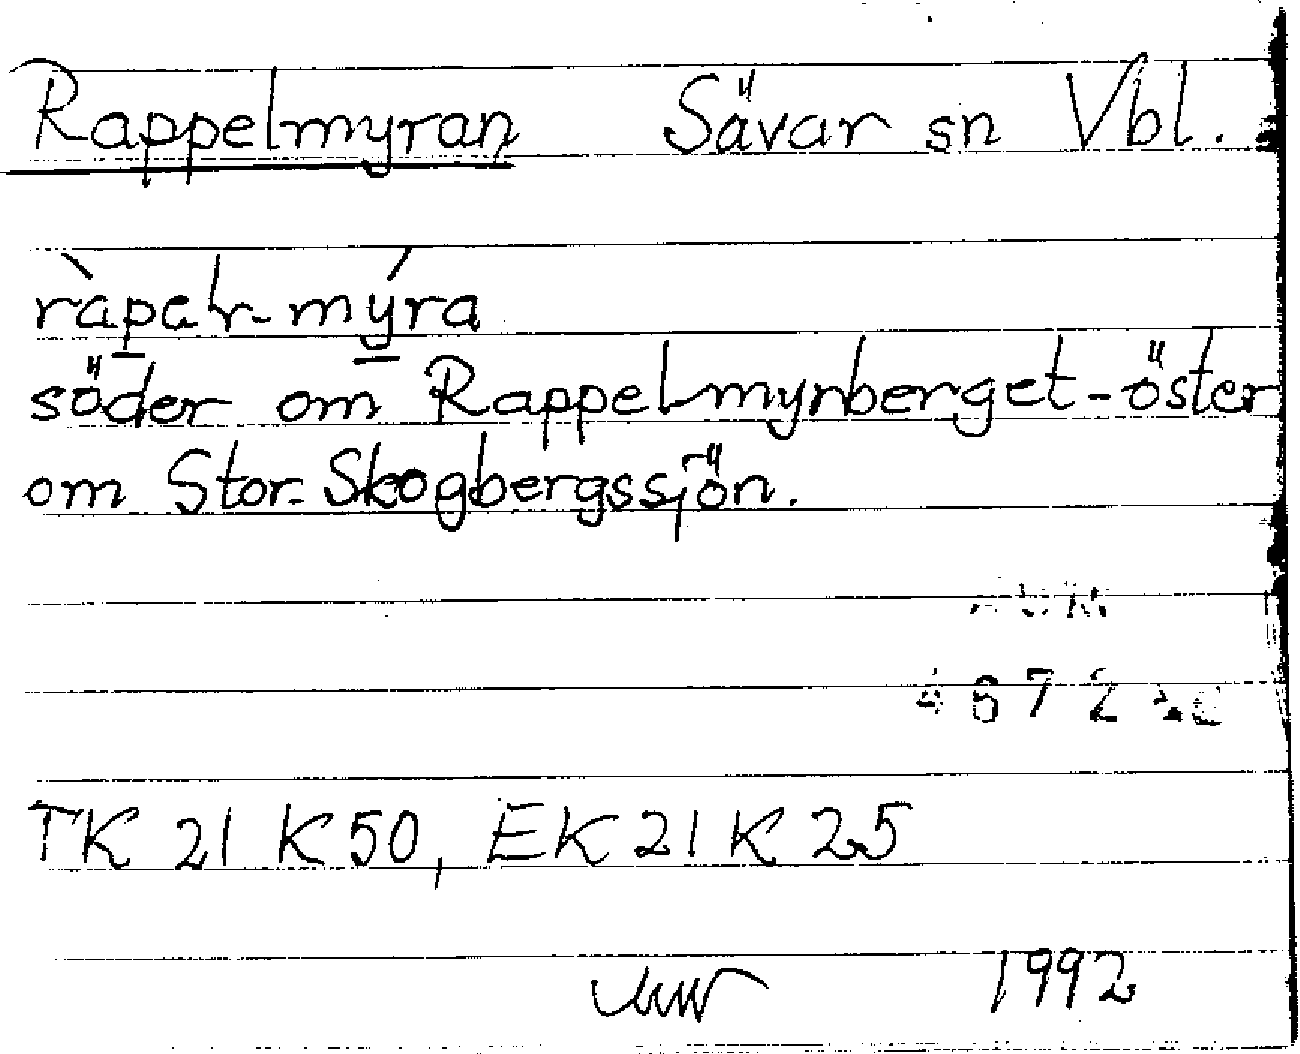 Rappelmyran Sävar sn Vbl.
söder om Rappelmyrberget-öster
om Stor-Skogbergssjön.
TK 21 K 50, EK 21 K 25
1992